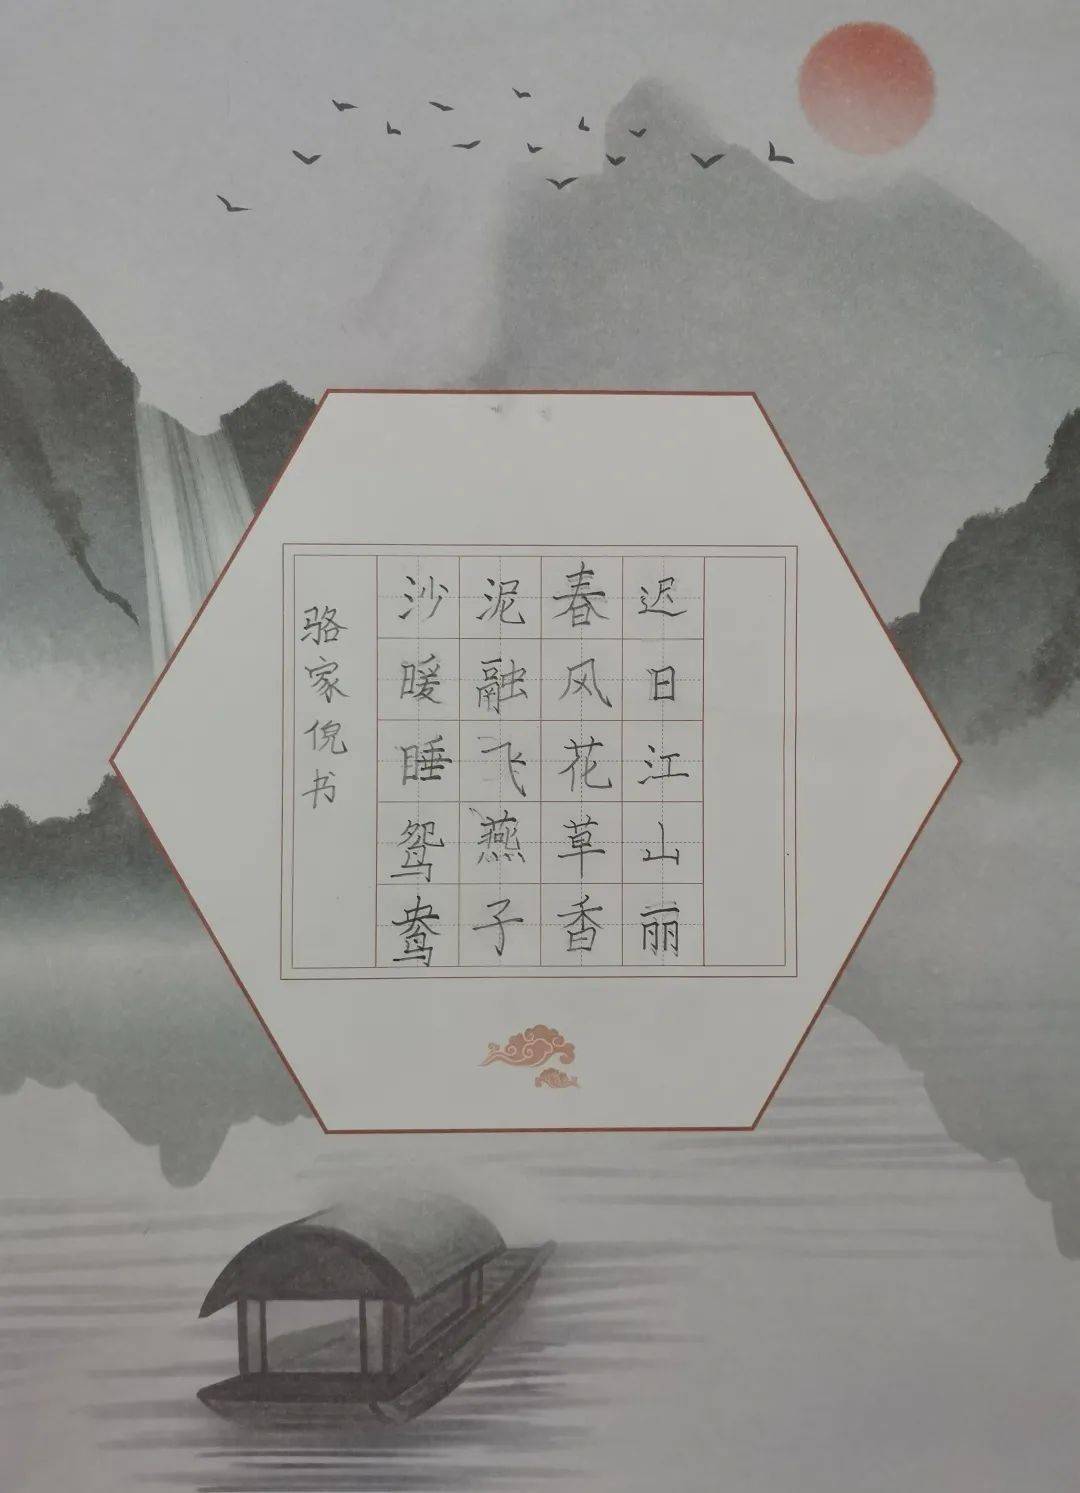 迟日江山丽
春风花草香
泥融飞燕子
沙暖睡鸳鸯
骆家倪书